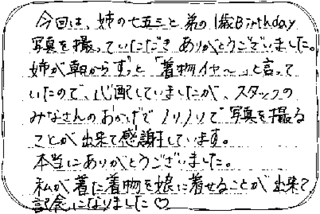 今回は、姉の七五三と弟の1歳Birthday
写真を撮っていただき ありがとうございました。
姉が朝からずっと「着物イヤ～」と言って
いたので、心配していましたが、スタッフの
みなさんのおかげで ノリノリで写真を撮る
ことが出来て感謝しています。
本当にありがとうございました。
私が着た着物を娘に着せることが出来て
記念になりました♡